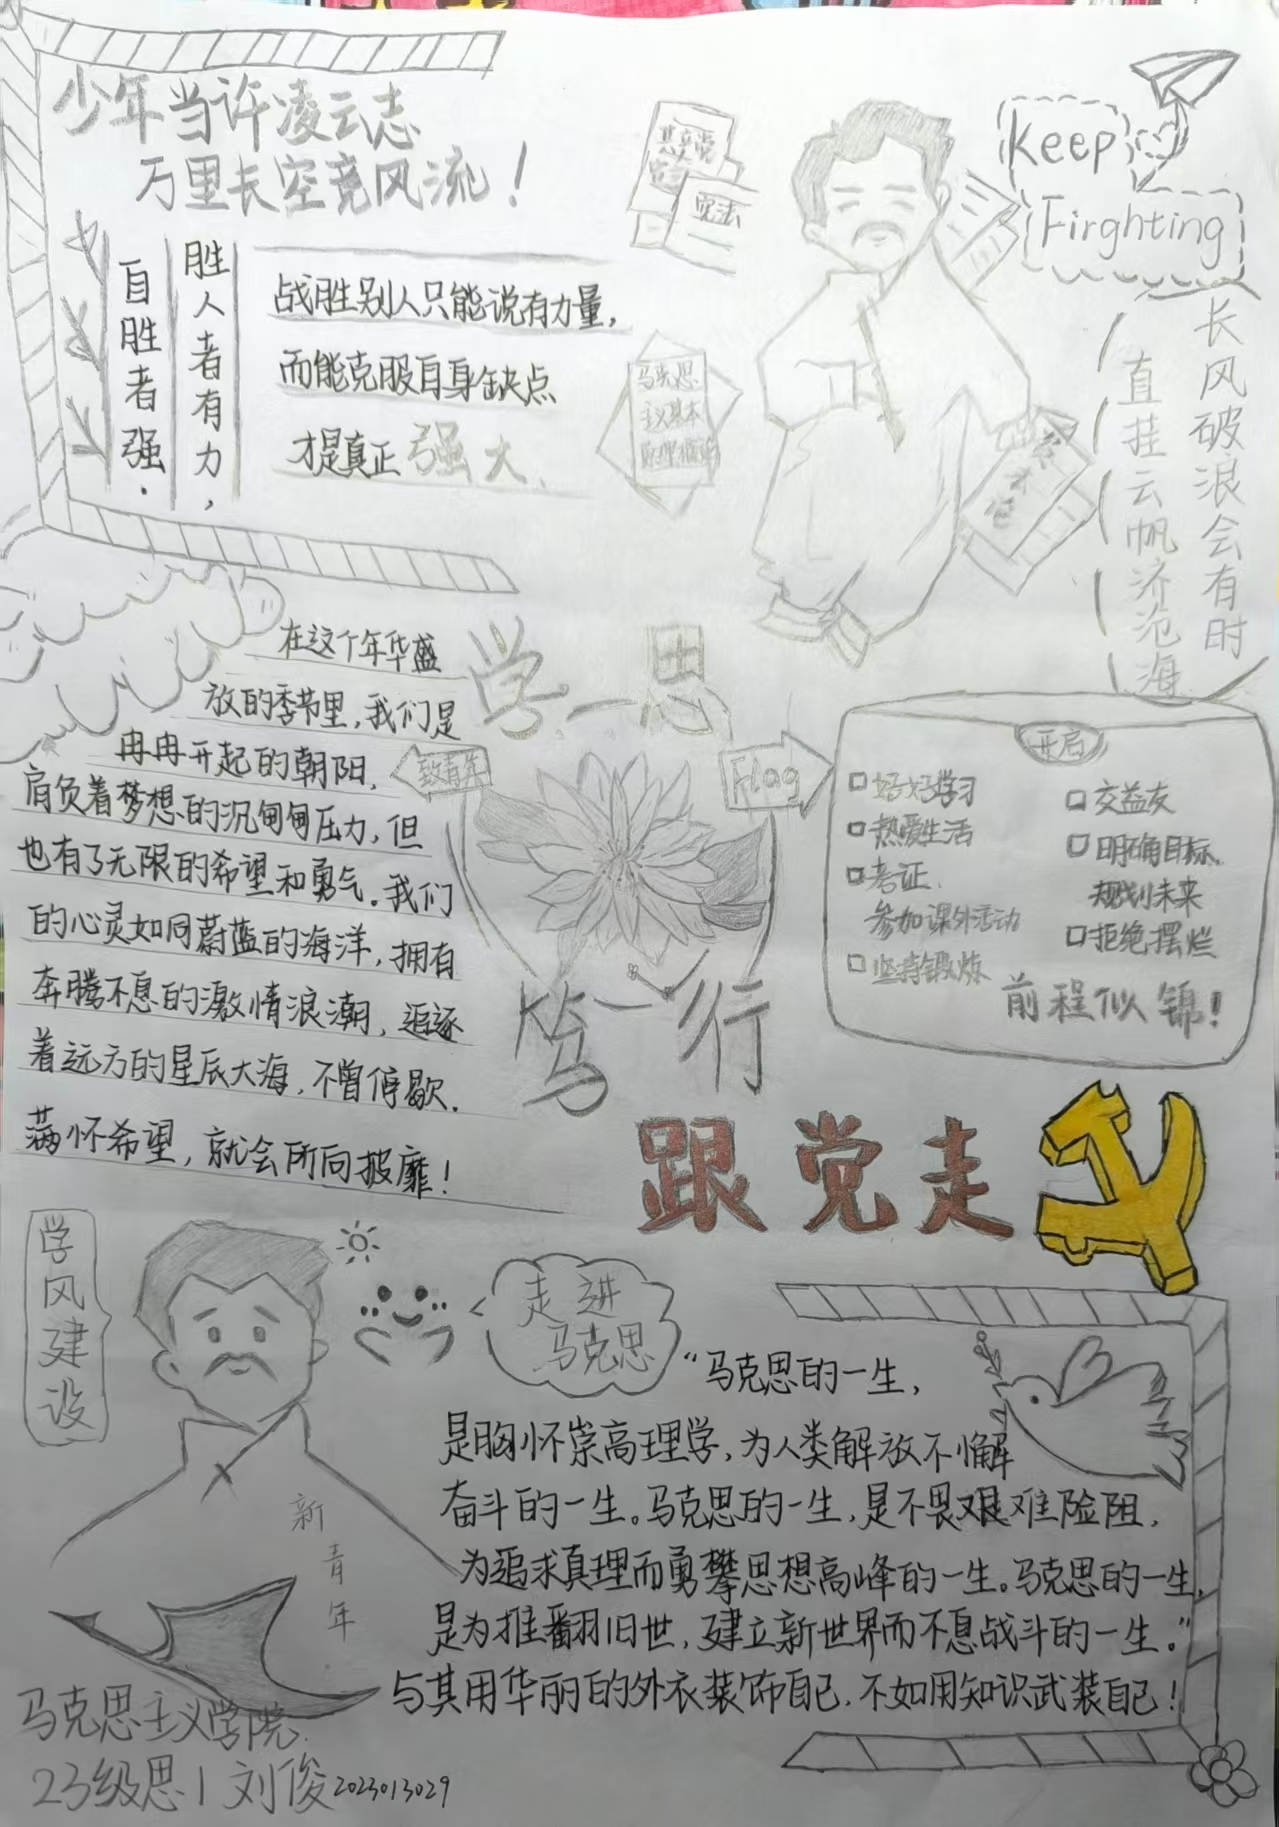 少年当许凌云志
万里长空竞风流！
胜人者有力，
自胜者强.
战胜别人只能说有力量，
而能克服自身缺点
才是真正强大.
宪法
马克思
主义基本
Keep
Firghting
长风破浪会有时
直挂云帆济沧海
在这个年华盛
放的季节里，我们是
冉冉开起的朝阳，
肩负着梦想的沉甸甸压力，但
也有了无限的希望和勇气。我们
的心灵如同蔚蓝的海洋，拥有
奔腾不息的激情浪潮，追逐
着远方的星辰大海，不曾停歇.
满怀希望，就会所向披靡！
学一思
致青年
Flag
笃一行
开启
好好学习
热爱生活
考证.
参加课外活动
坚持锻炼
交益友
明确目标.
规划未来
拒绝摆烂
前程似锦！
跟党走
学风建设
新青年
走进
马克思
“马克思的一生，
是胸怀崇高理学，为人类解放不懈
奋斗的一生。马克思的一生，是不畏艰难险阻，
为追求真理而勇攀思想高峰的一生。马克思的一生，
是为推翻旧世，建立新世界而不息战斗的一生。”
与其用华丽的外衣装饰自己.不如用知识武装自己！
马克思主义学院.
23级思1 刘俊2023013029